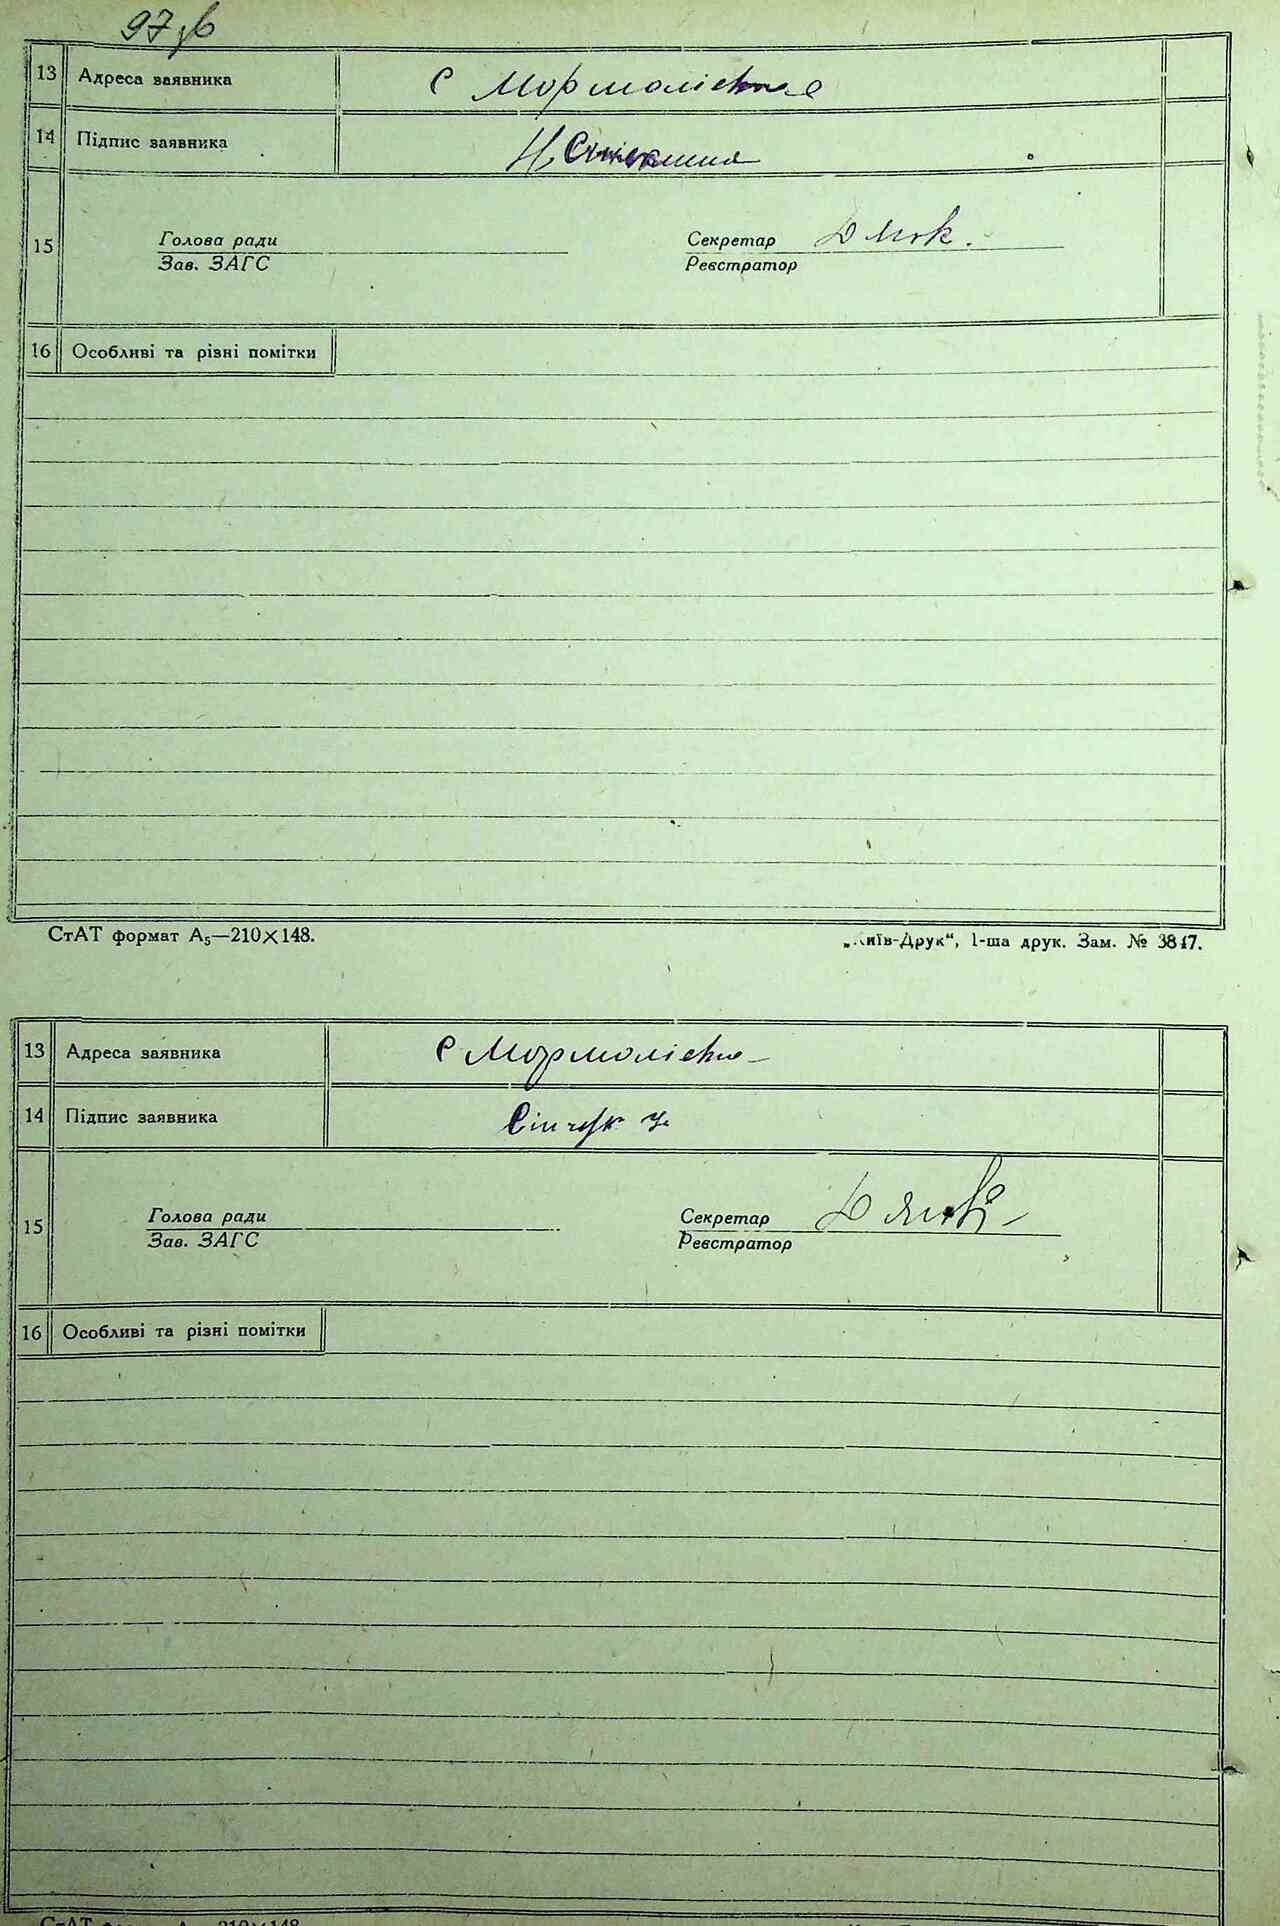 97 зв
13 Адреса заявника с Мормоліївка
14 Підпис заявника Н.
15 Голова ради Секретар
Зав. ЗАГС Реєстратор
16 Особливі та різні помітки
СтАТ формат А₅—210×148. „Київ-Друк“, 1-ша друк. Зам. № 3847.
13 Адреса заявника с Мормоліївка
14 Підпис заявника
15 Голова ради Секретар
Зав. ЗАГС Реєстратор
16 Особливі та різні помітки